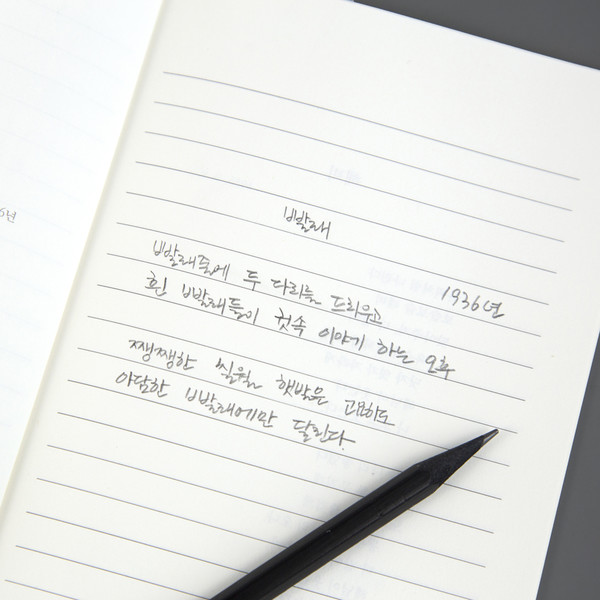 6년
빨래
1936년
빨래줄에 두 다리를 드리우고
흰 빨래들이 귓속 이야기 하는 오후
쨍쨍한 칠월 햇발은 고요히도
아담한 빨래에만 달린다.